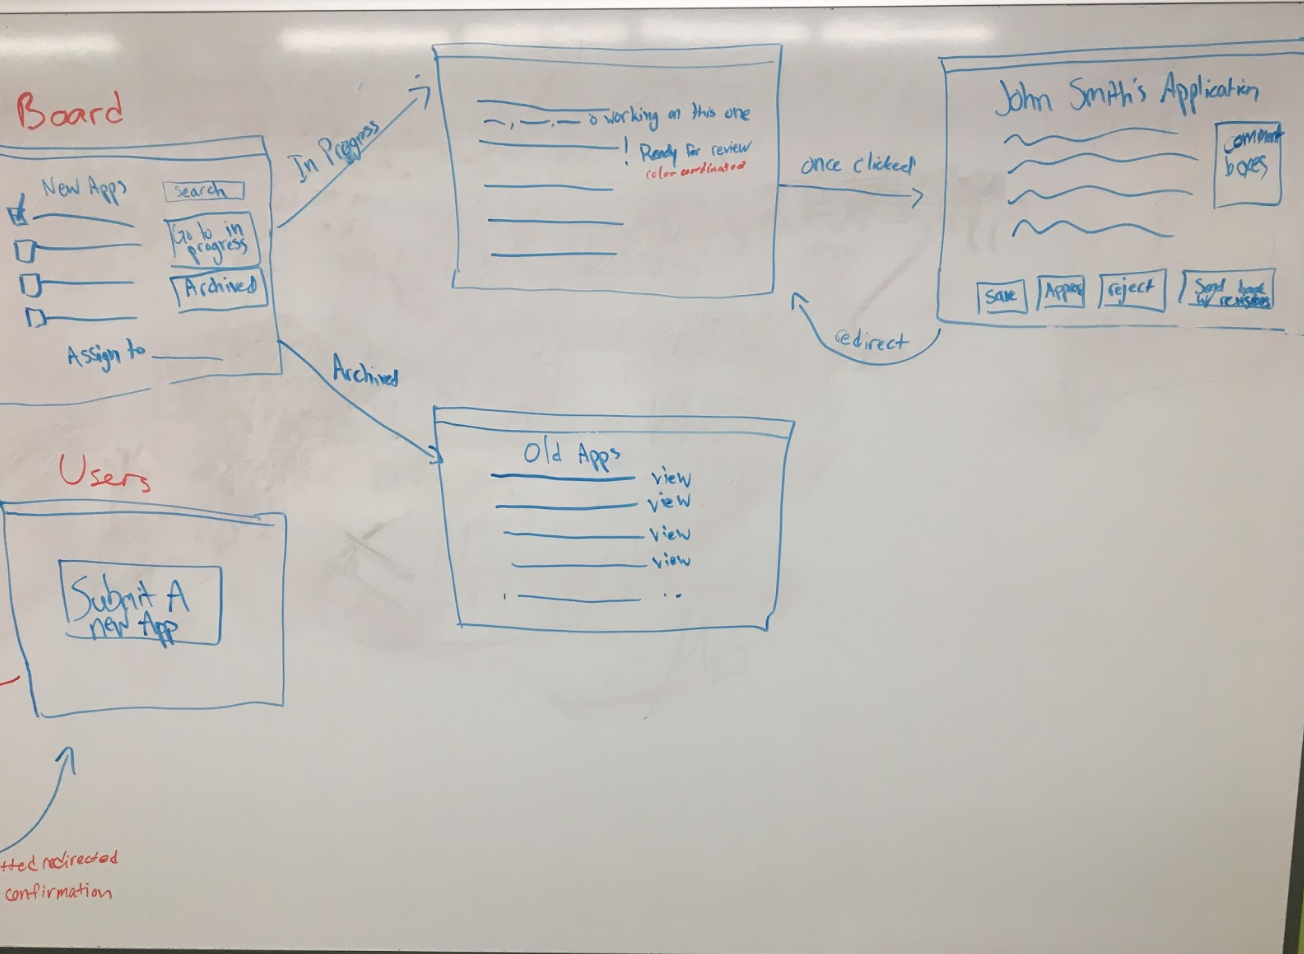 Board
New Apps
search
Go to in
progress
Archived
Assign to
In Progress
Archived
working on this one
! Ready for review
color coordinated
once clicked
John Smith's Application
comment
boxes
save
reject
Send back
w/ revisions
redirect
Old Apps
view
view
view
view
Users
Submit A
new App
redirected
confirmation